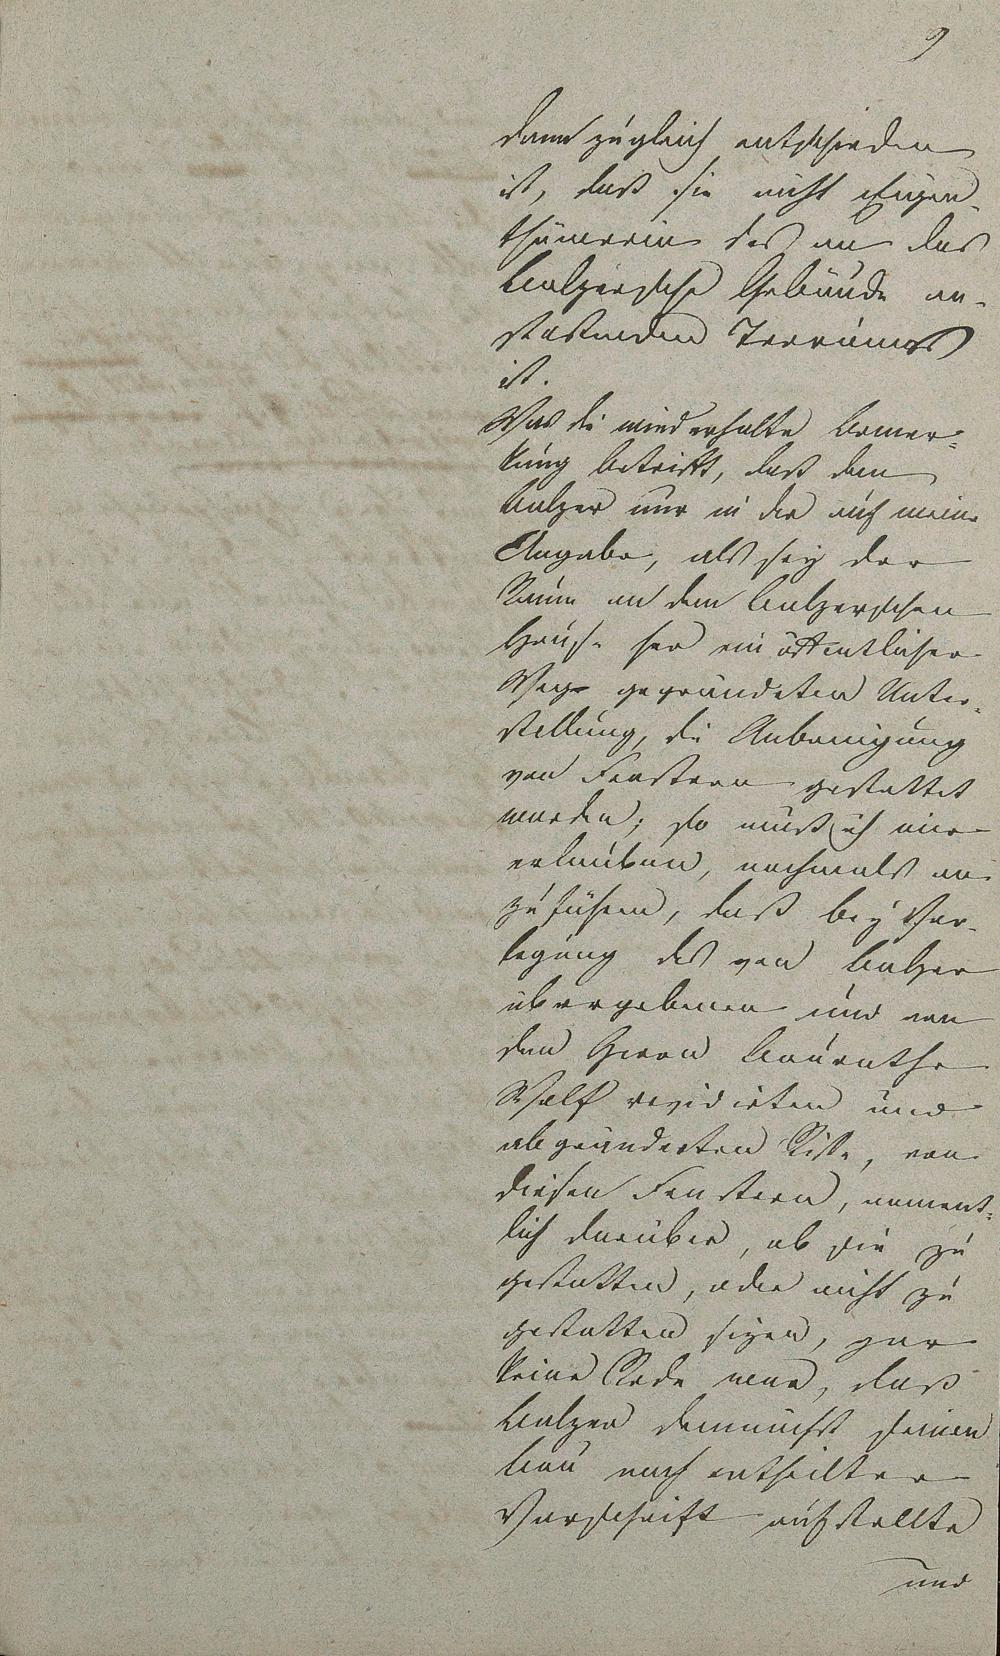 9
dann zugleich entschieden
ist, daß sie nicht Eigen-
thümerin des an das
Balzersche Gebäude an-
stosenden Terrains
ist.
Was die wiederholte Bemer-
kung betrifft, daß dem
Balzer nur in der auf meine
Angabe, als sey der
Raum an dem Balzerschen
Hause her ein öffentlicher
Weg gegründeten Unter-
stellung, die Anbringung
von Fenstern gestattet
worden; so muß ich mir
erlauben, nochmals an
zuführen, daß bey Vor-
legung des von Balzer
übergebenen und von
dem Herrn Baurathe
Wolf revidirten und
abgeänderten Risse, von
diesen Fenstern, nament-
lich darüber, ob sie zu
gestatten, oder nicht zu
gestatten seyen, gar
keine Rede war, daß
Balzer demnächst seinen
Bau nach ertheilter
Vorschrift aufstellte
und